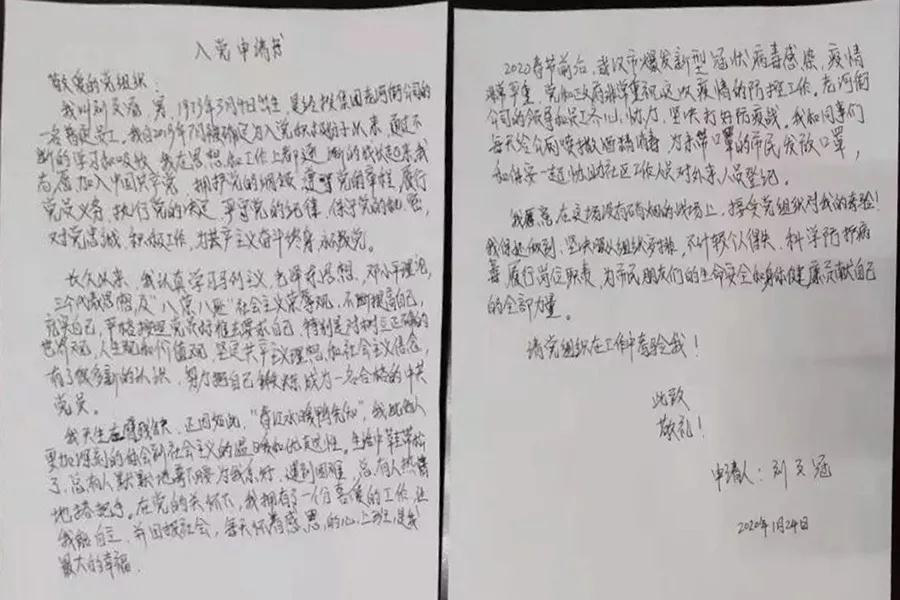 入党申请书
敬爱的党组织:
我叫刘文冠,男,1973年3月9日出生,是经投集团龙河街公司的
一名普通员工。我自2019年7月被确定为入党积极分子以来,通过不
断的学习和吸收,我在思想和工作上都逐渐的成长起来,我
志愿加入中国共产党,拥护党的纲领,遵守党的章程,履行
党员义务,执行党的决定,严守党的纪律,保守党的机密,
对党忠诚,积极工作,为共产主义奋斗终身,永不叛党。
长久以来,我认真学习马列主义、毛泽东思想、邓小平理论,
三个代表思想,及“八荣八耻”社会主义荣辱观,不断提高自己,
充实自己,严格按照党员的标准要求自己,特别是对树立正确的
世界观,人生观和价值观,坚定共产主义理想和社会主义信念,
有了很多新的认识,努力把自己锻炼成为一名合格的中共
党员。
我天生血膺残缺,正因如此,“春江水暖鸭先知”,我比他人
更加深刻的体会到社会主义的温暖和优越性。生活中鞋带松
了,总有人默默地蹲下腰为我系好,遇到困难,总有人热情
地搭把手。在党的关怀下,我拥有了一份喜爱的工作,让
我能自立,并回报社会,每天怀着感恩的心上班,是我
最大的幸福。
2020春节前后,武汉市爆发新型冠状病毒感染,疫情
非常严重,党和政府非常重视这次疫情的防控工作,龙河街
公司的领导和员工齐心协力,坚决打好防疫战,我和同事们
每天给公厕喷撒酒精消毒,为未带口罩的市民发放口罩,
和保安一起协助社区工作人员对外来人员登记。
我愿意在这场没有硝烟的战场上,接受党组织对我的考验!
我保证做到:坚决服从组织安排,不计较个人得失,科学防护病
毒,履行岗位职责,为市民朋友们的生命安全和身体健康贡献自己
的全部力量。
请党组织在工作中考验我!
此致
敬礼!
申请人:刘文冠
2020年1月24日